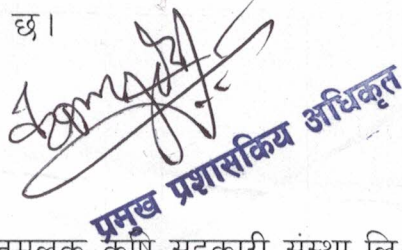 छ।
प्रमुख प्रशासकिय अधिकृत
कृषि सहकारी संस्था लि